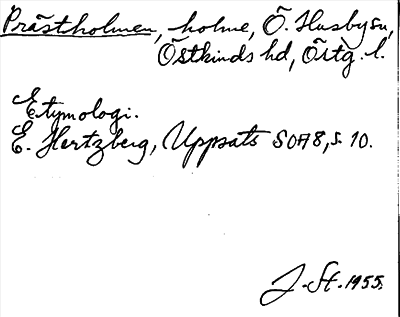 Prästholmen, holme, Ö. Husby sn,
Östkinds hd, Östg. l.
Etymologi.
E. Hertzberg, Uppsats SOÄ 8, s. 10.
J. St. 1955.